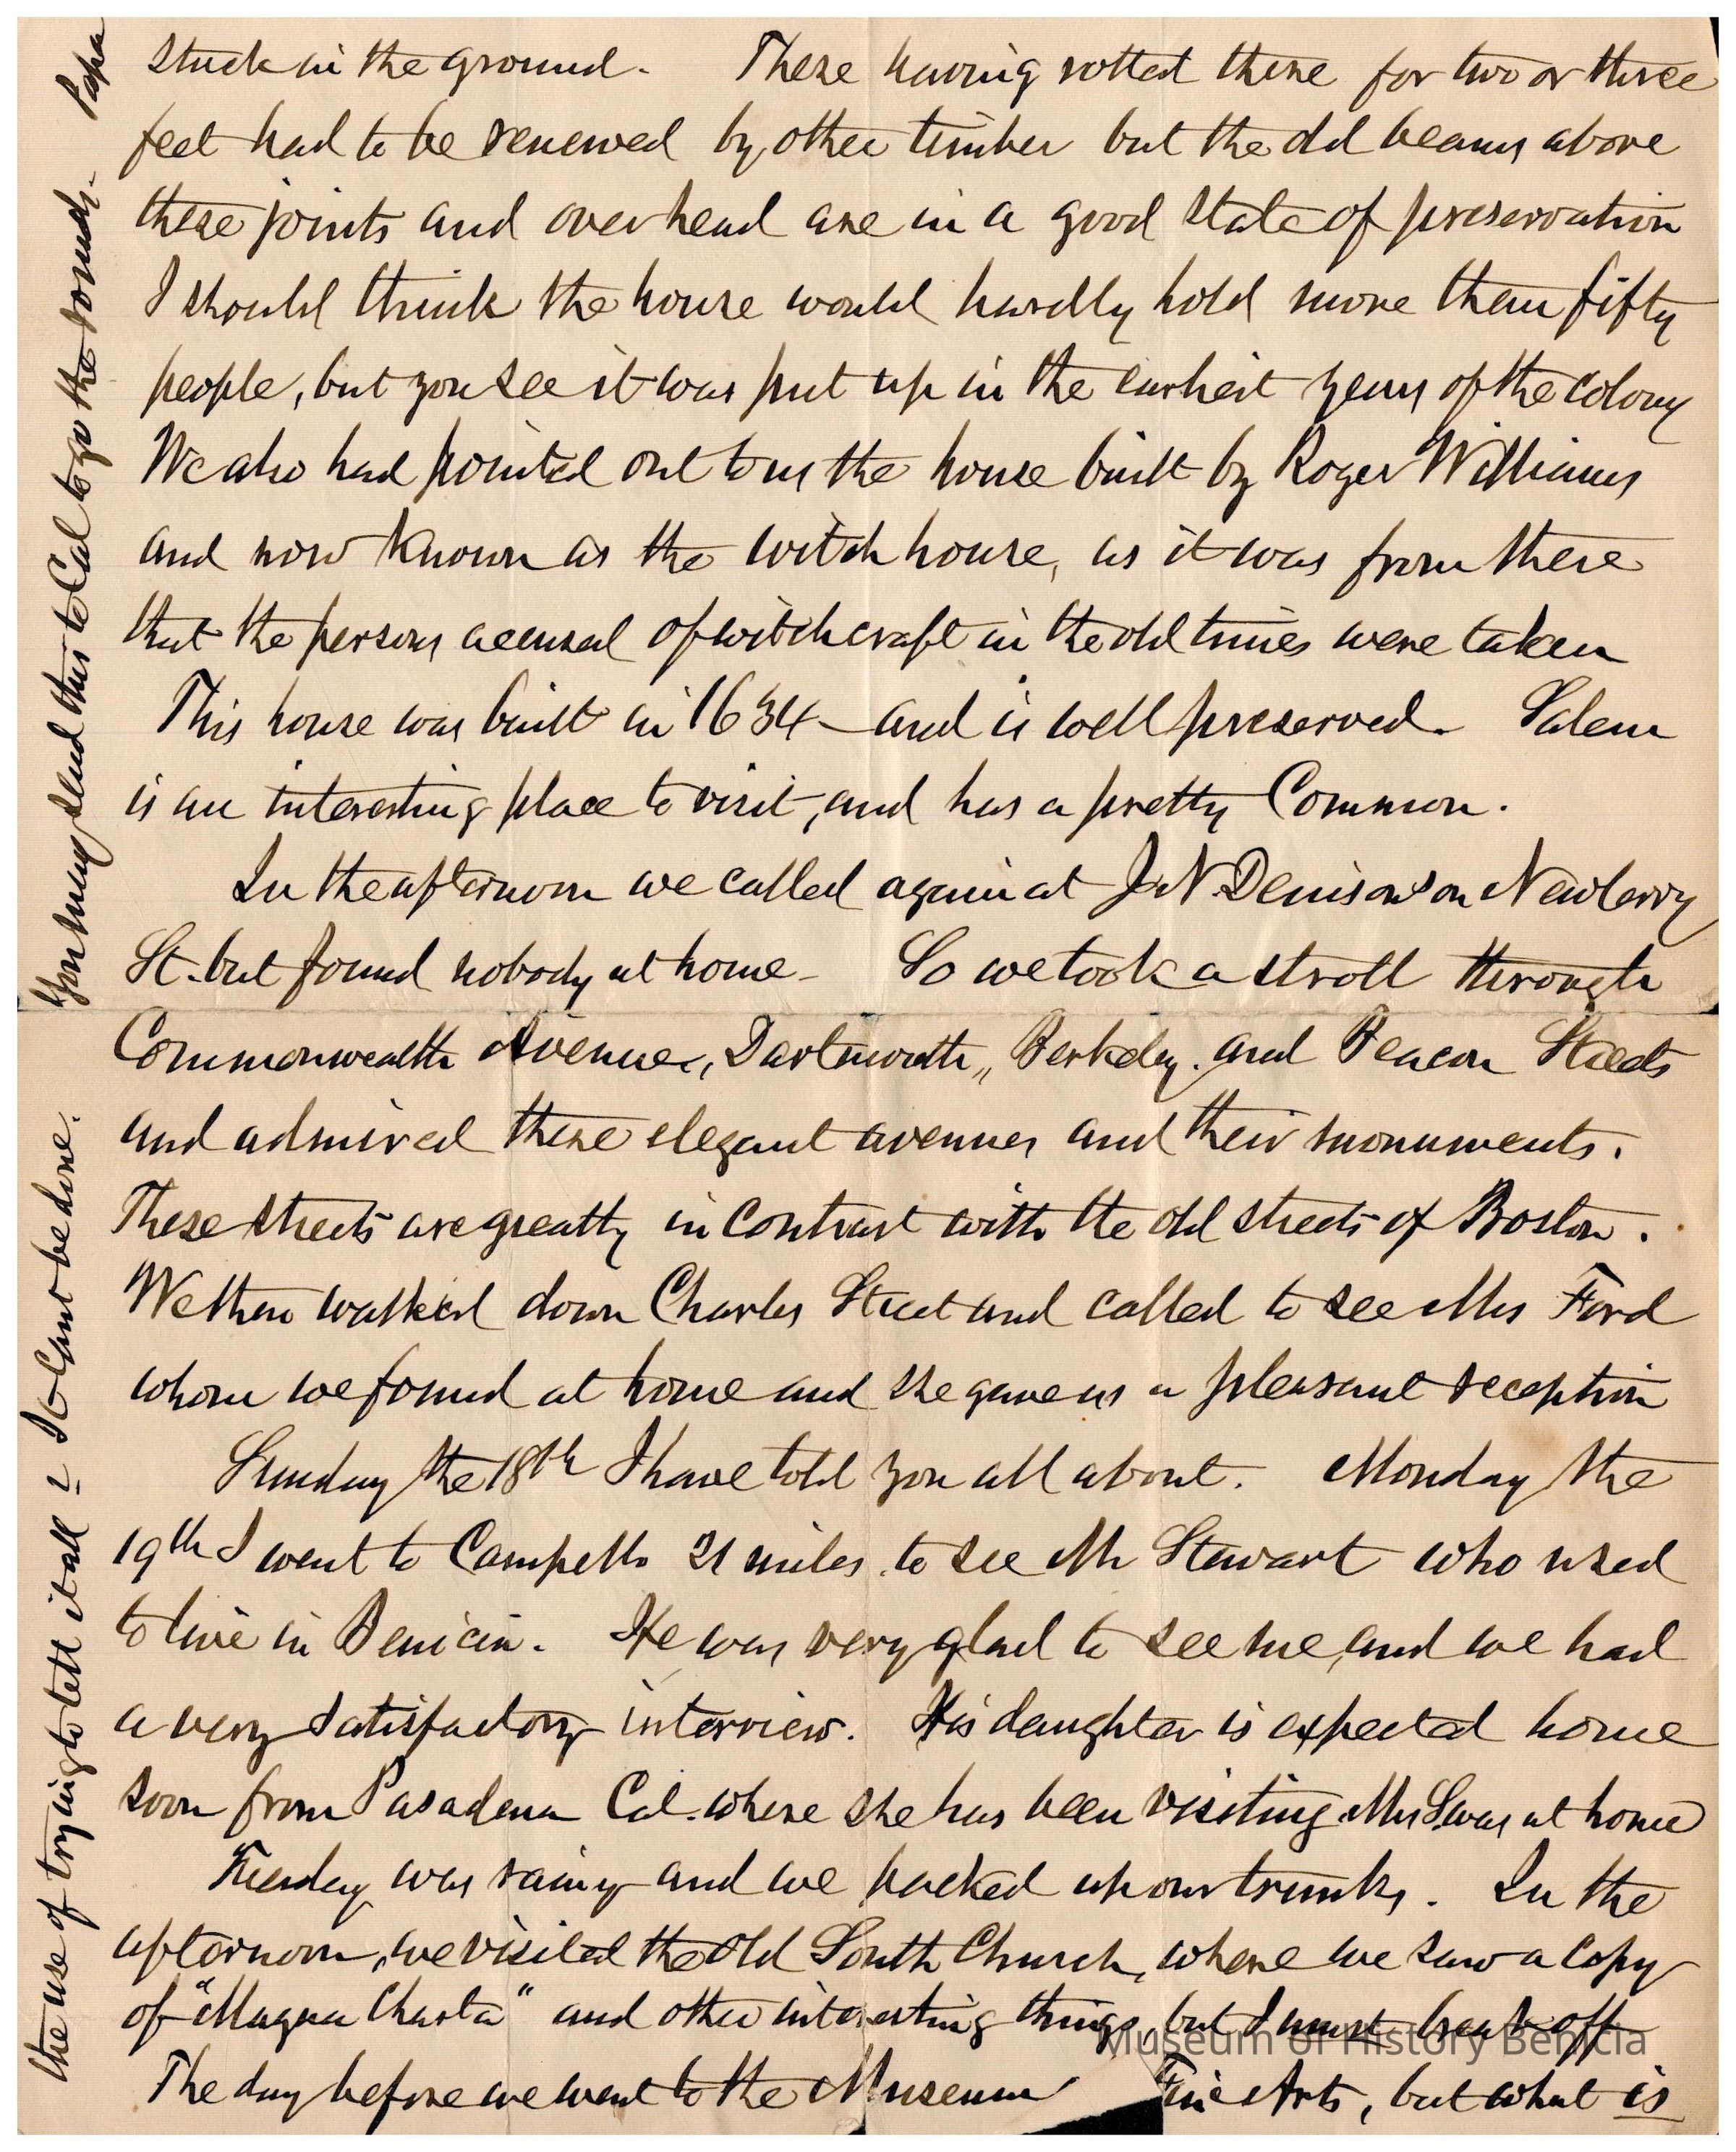 stuck in the ground. These having rotted there for two or three
feet had to be renewed by other timber but the old beams above
these joints and overhead are in a good state of preservation
I should think the house would hardly hold more than fifty
people, but you see it was put up in the earliest years of the colony
We also had pointed out to us the house built by Roger Williams
and now known as the witch house, as it was from there
that the persons accused of witchcraft in the old times were taken
This house was built in 1634 - and is well preserved. Salem
is an interesting place to visit, and has a pretty Common.
In the afternoon we called again at J. N. Denison's on Newberry
St. but found nobody at home - So we took a stroll through
Commonwealth Avenue, Dartmouth, Berkeley. and Beacon Streets
and admired these elegant avenues and their monuments.
These streets are greatly in contrast with the old streets of Boston.
We then walked down Charles Street and called to see Mrs Ford
whom we found at home and she gave us a pleasant reception
Sunday the 18th I have told you all about. Monday the
19th I went to Campello 21 miles to see Mr Stewart who used
to live in Benicia. He was very glad to see me, and we had
a very satisfactory interview. His daughter is expected home
soon from Pasadena Cal. where she has been visiting. Mrs S. was at home
Tuesday was rainy and we packed up our trunks. In the
afternoon, we visited the Old South Church, where we saw a copy
of "Magna Charta" and other interesting things, but I must break off
The day before we went to the Museum Fine Arts, but what is
the use of trying to tell it all - It Cant be done.
You may send this to Cal to go the rounds. Papa
Museum of History Benicia